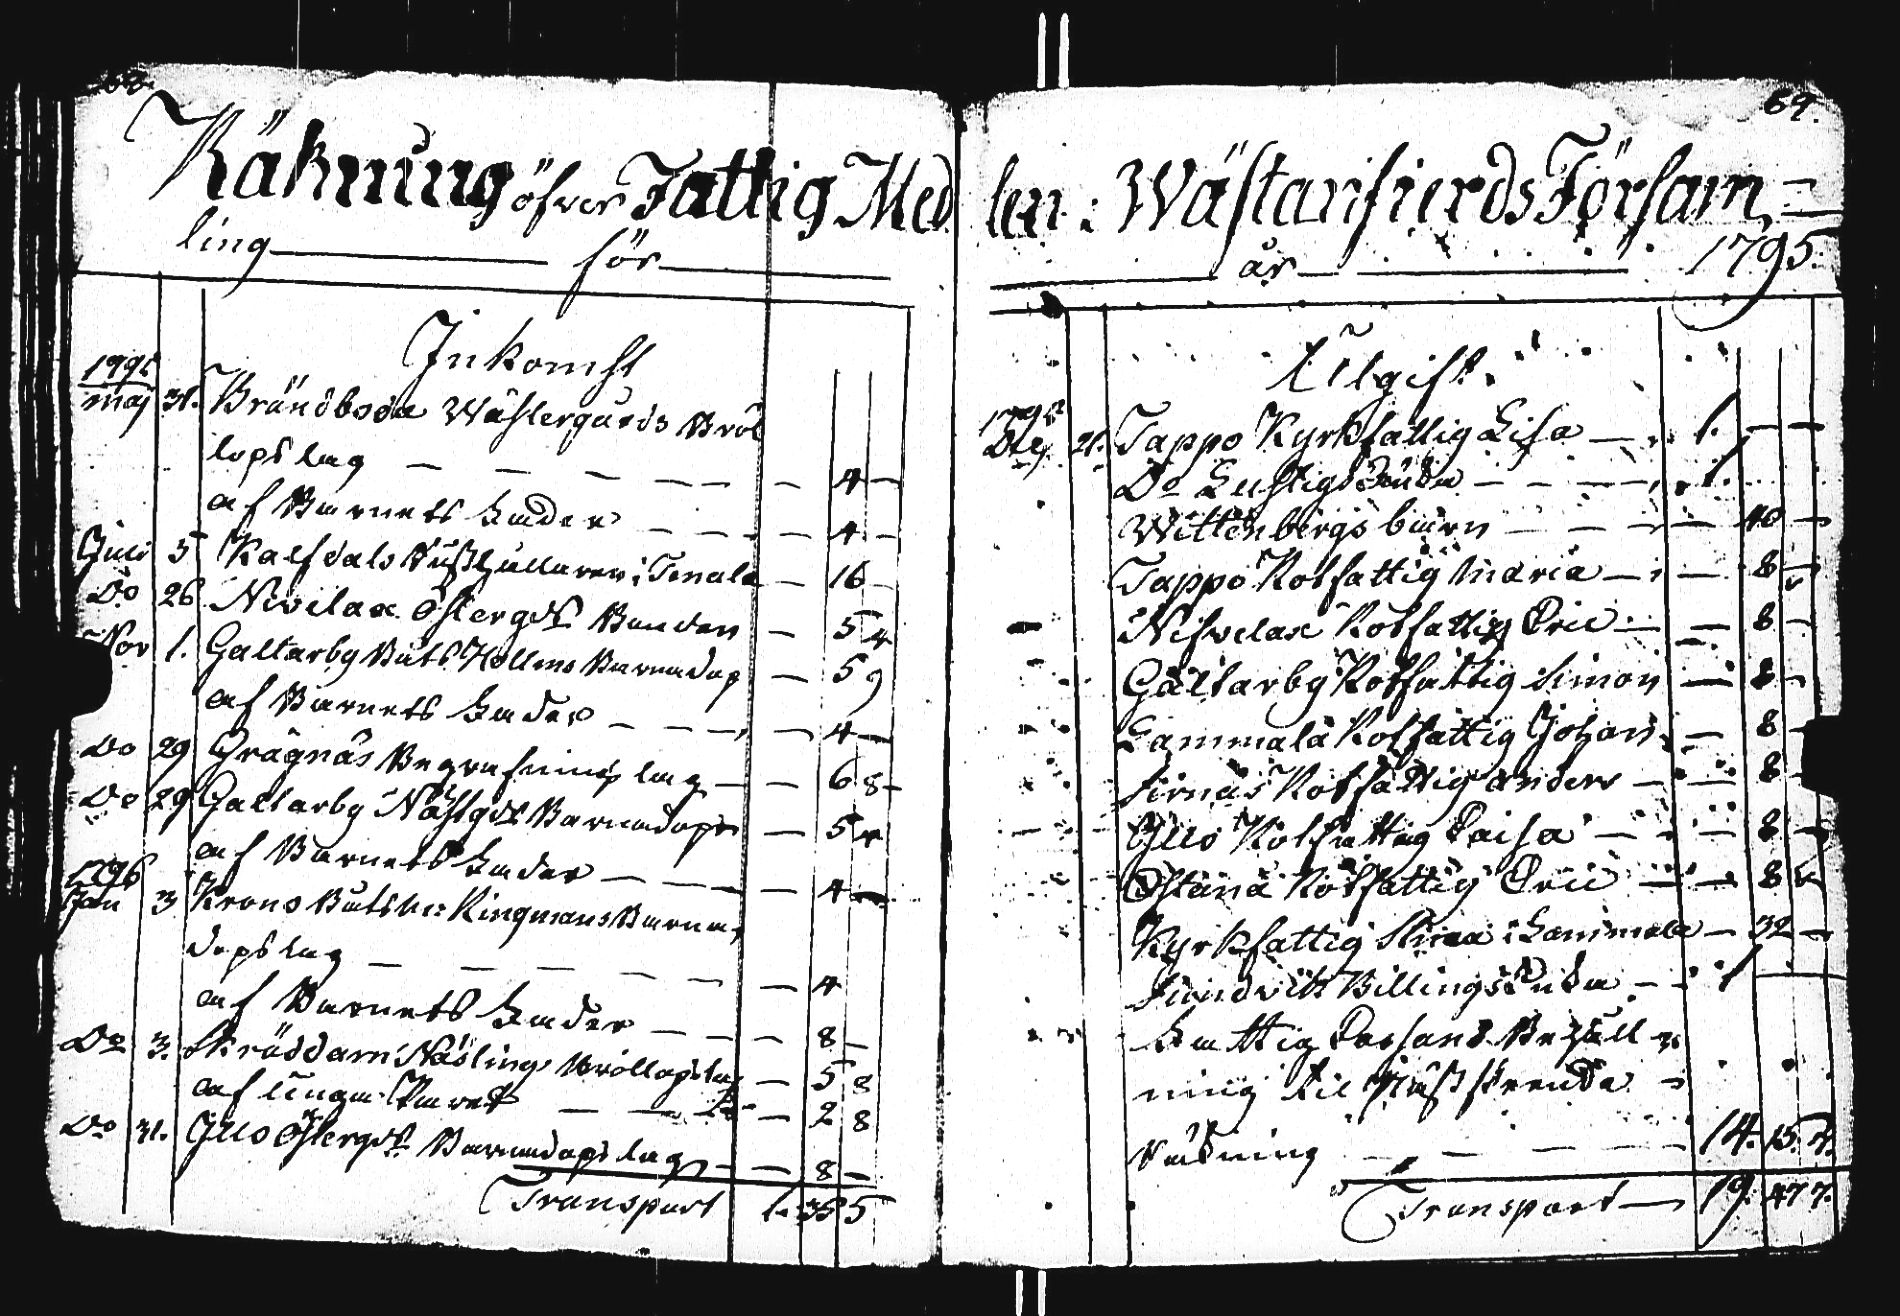 69.
Räkning öfver Fattig Med
len i Wästanfierds Försam-
ling för
år 1795.
Inkomst
1795
maj 31. Brändboda Wästergårds Bröl
lops lag — — — — — 4 —
af Barnets Fader — — — 4 —
Juli 5 Kalfdals i Tenala — 16 —
Do 26 Nivelax Östergds Bonden — 5 4
Nov 1. Galtarby Båts Hollms Barndop — 5 9
af Barnets Fader — — — 4 —
Do 29 Grägnäs Begrafnings lag — — 6 8 —
Do 29 Galtarby Nästgds Barndops — 5 4
af Barnets Fader — — — 4 —
1796
Jan 3 Krono Båtsm: Ringmans Barn
dops lag — — — — — 4
af Barnets Fader — — — 8 —
Do 3. Skräddarn Näslings Bröllopslag — 5 8
af unga Paret — — — 2 8
Do 31. Illo Östergds Barndops lag — — 8 —
Transport 1. 35 5
Utgift.
1795
21. Tappo Kyrkfattig Lisa — 1. — —
Do Lustigs Enka — — — 1.
Wittenbergs barn — — — 40 —
Tappo Rotfattig Maria — — 8 —
Nifvelax Rotfattig Eric — — 8 —
Galtarby Rotfattig Simon — 8 —
Lammala Rotfattig Johan — 8 —
Sirnäs Rotfattig Anders — — 8 —
Illo Rotfattig Caisa — — 8 —
Östanå Rotfattig Eric — — 8
Kyrkfattig i Lammala — 32 —
Billings Enka — 1 —
Fattig Cassans Behåll
ning til näst
räkning — — — 14. 15. 4.
Transport — 19. 47 7.